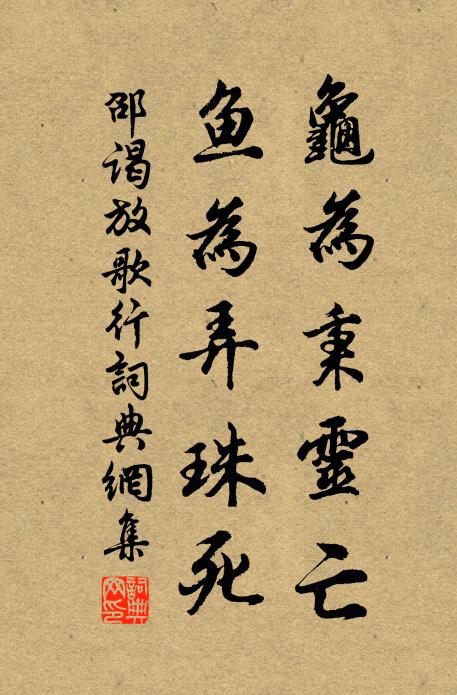 龜為秉靈亡
魚為弄珠死
邵謁放歌行詞典網集
詞典網印